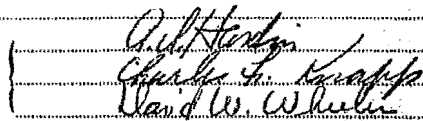 A. S. Hardin
Charles L. Knapp
David W. Wheeler